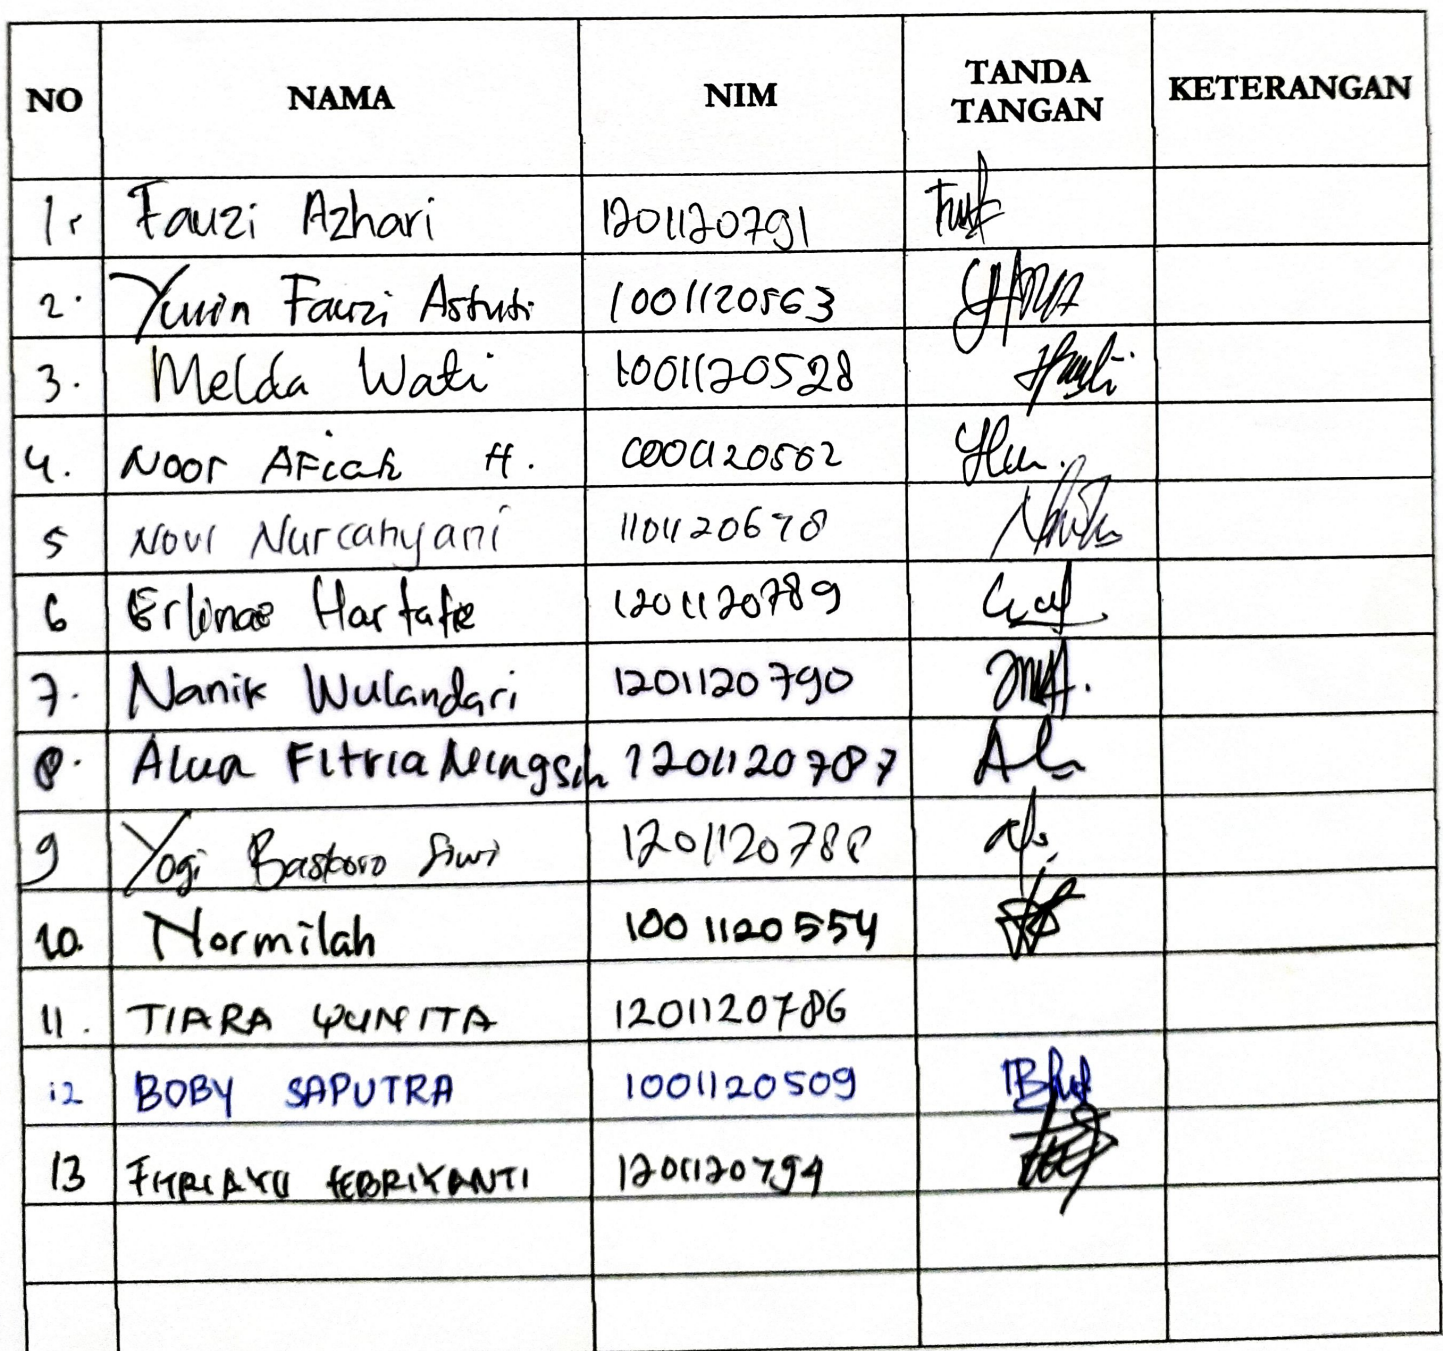 NO NAMA NIM TANDA TANGAN KETERANGAN
1. Fauzi Azhari 1201120791
2. Yunin Fauzi Astuti 1001120563
3. Melda Wati 1001120528
4. Noor Afiah H. 1001120562
5 Novi Nurcahyani 1101120678
6 Erlinae Hartate 1201120789
7. Nanik Wulandari 1201120790
8. Alua Fitria Ningsih 1201120787
9 Yogi Baskoro Siwi 1201120788
10. Normilah 1001120554
11. TIARA YUNITA 1201120786
12 BOBY SAPUTRA 1001120509
13 FITRIAYU FEBRIYANTI 1201120794